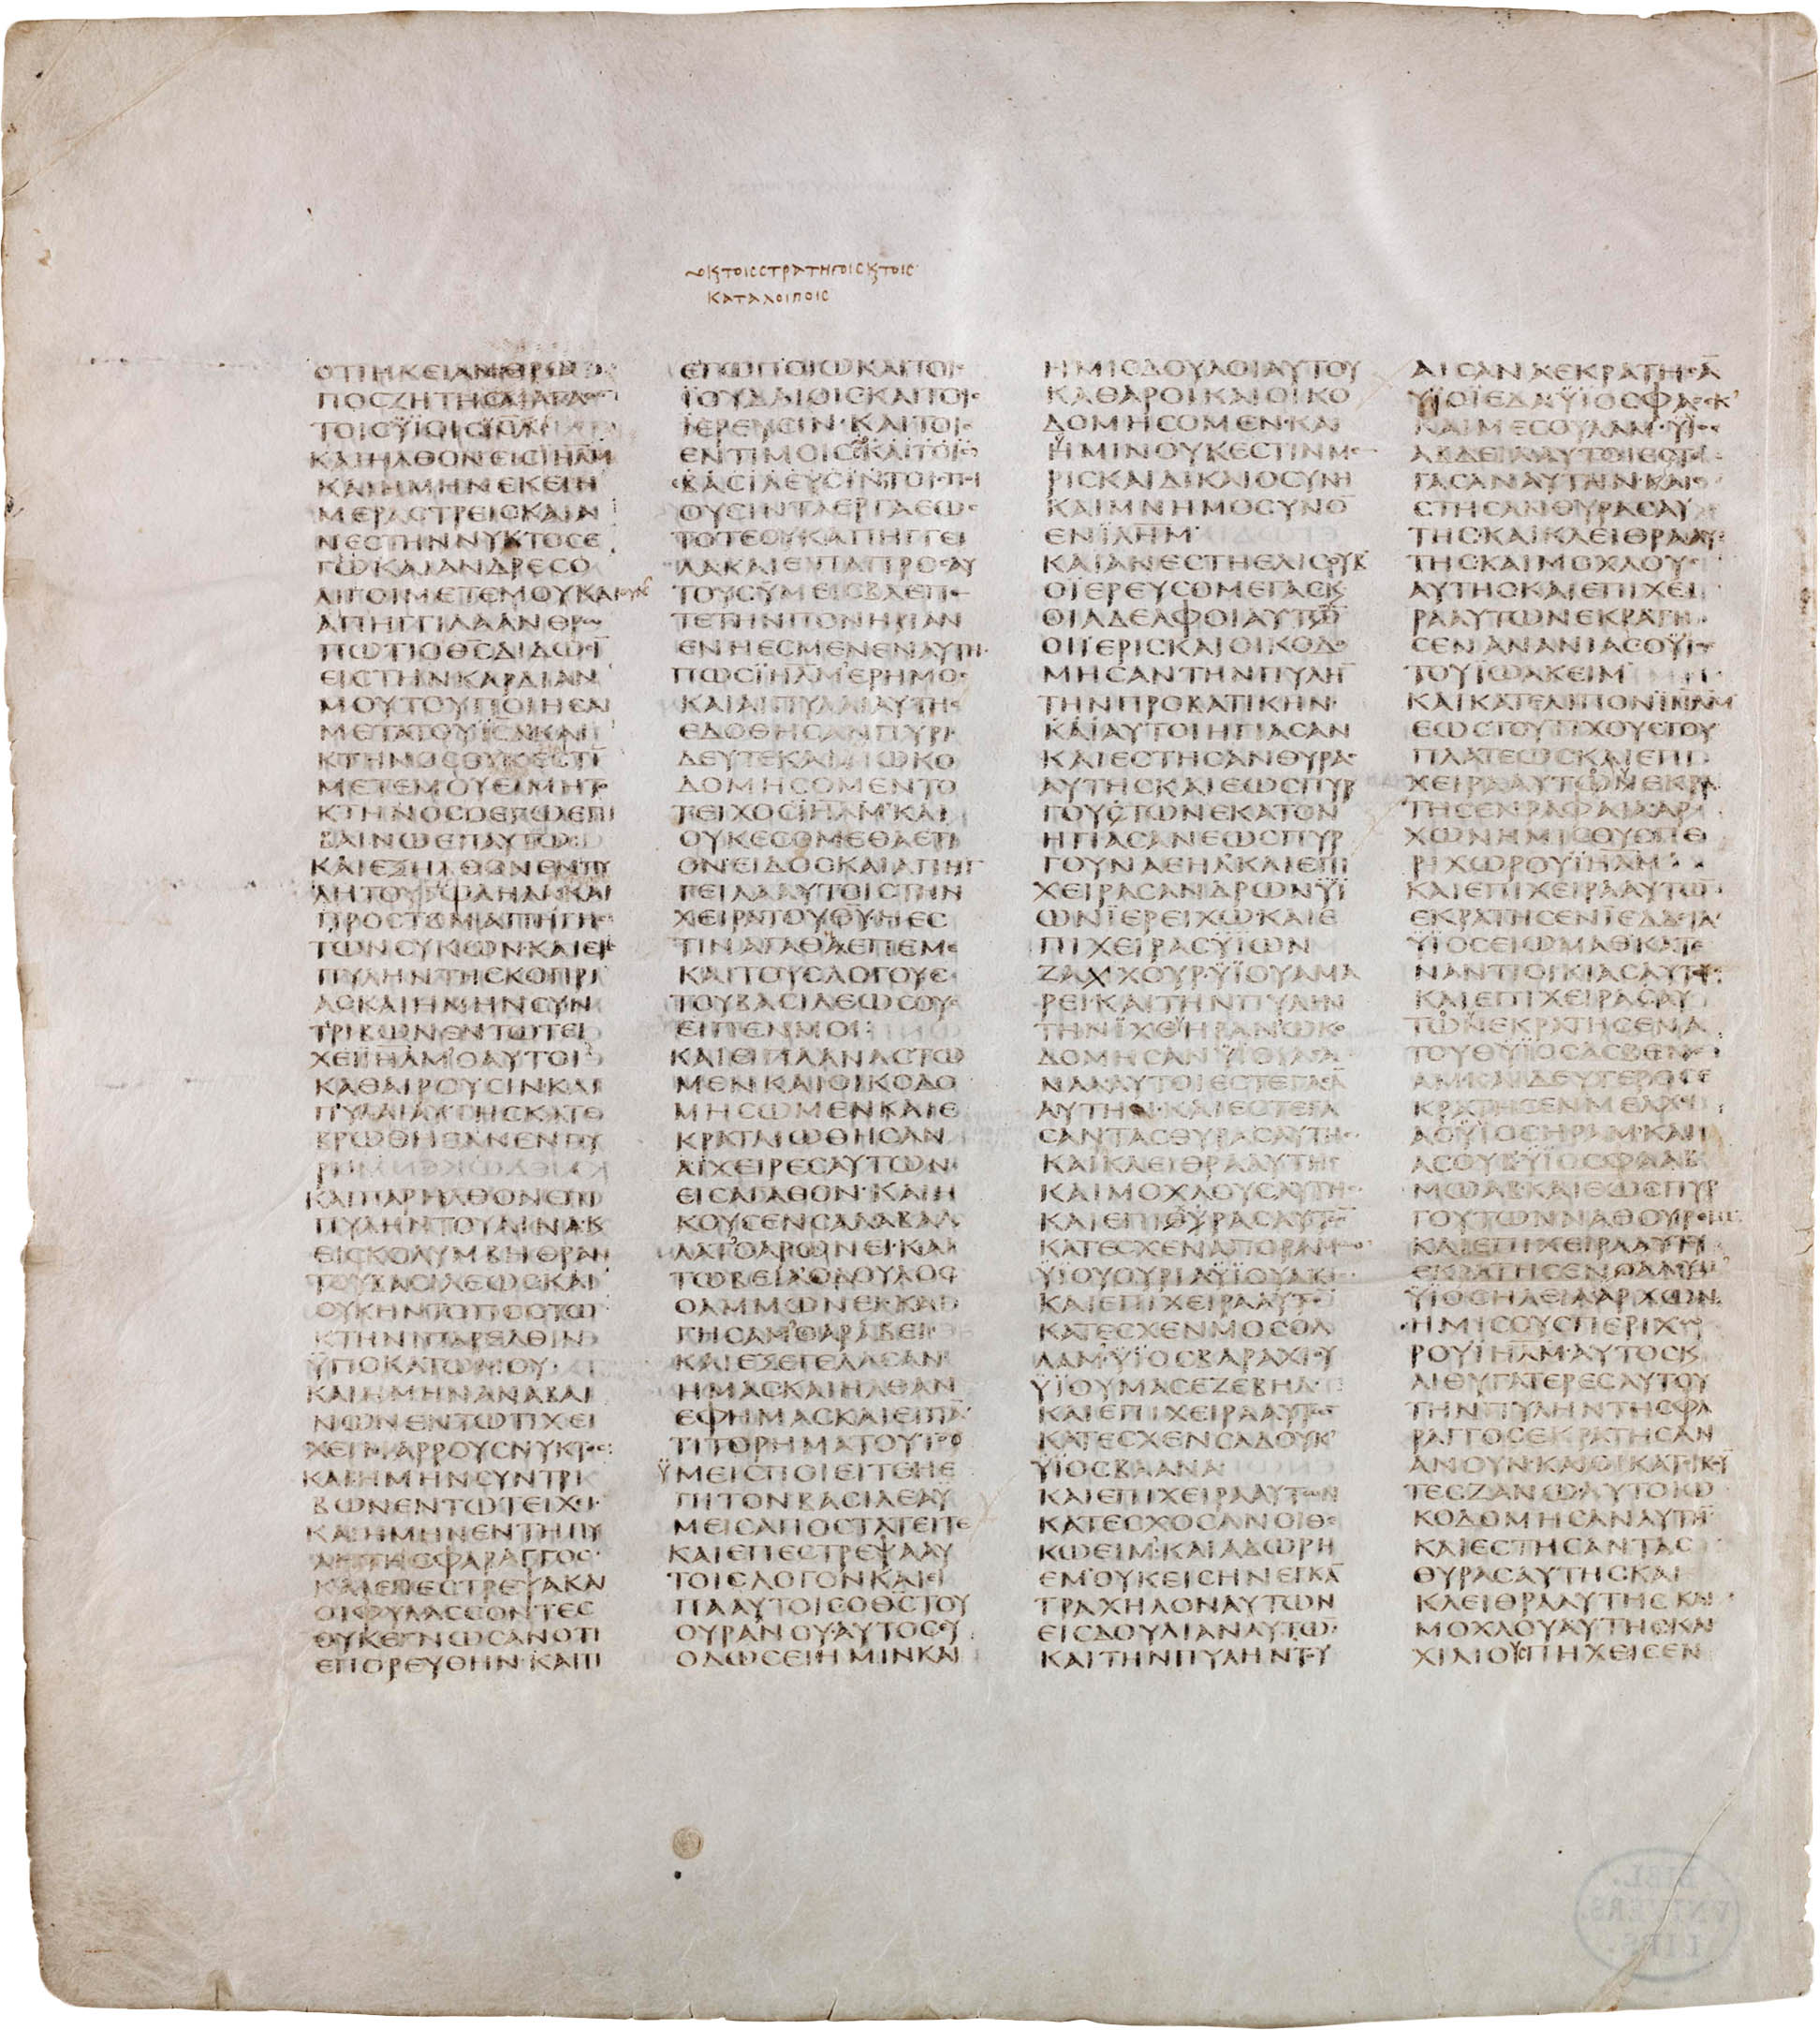 κ, τοιςστρατηγοιςκ,τοις
καταλοιποις
ΟΤΙΗΚΕΙΑΝΘΡΩ
ΠΟϹΖΗΤΗϹΑΙΑΓΑ
ΤΟΙϹΫΙΟΙϹ
ΚΑΙΗΛΘΟΝΕΙϹΙΗΛΜ
ΚΑΙΗΜΗΝΕΚΕΙΗ
ΜΕΡΑϹΤΡΕΙϹΚΑΙΑΝ
ΝΕϹΤΗΝΝΥΚΤΟϹΕ
ΓΩΚΑΙΑΝΔΡΕϹΟ
ΛΙΓΟΙΜΕΤΕΜΟΥΚΑΙΟΥΚ
ΑΠΗΓΓΙΛΑΑΝΘΡΩ
ΠΩΤΙΟΘϹΔΙΔΩϹΙ
ΕΙϹΤΗΝΚΑΡΔΙΑΝ
ΜΟΥΤΟΥΠΟΙΗϹΑΙ
ΜΕΤΑΤΟΥΙϹΛΚΑΙ
ΚΤΗΝΟϹΟΥΚΕϹΤΙ
ΜΕΤΕΜΟΥΕΙΜΗΤΟ
ΚΤΗΝΟϹΟΕΓΩΕΠΙ
ΒΑΙΝΩΕΠΑΥΤΩ
ΚΑΙΕΞΗΛΘΟΝΕΝΠΥ
ΛΗΤΟΥΓΩΛΗΛΑΚΑΙ
ΠΡΟϹΤΟΜΑΠΗΓΗϹ
ΤΩΝϹΥΚΩΝΚΑΙΕΙϹ
ΠΥΛΗΝΤΗϹΚΟΠΡΙ
ΑϹΚΑΙΗΜΗΝϹΥΝ
ΤΡΙΒΩΝΕΝΤΩΤΕΙ
ΧΕΙΪΗΛΜΟΑΥΤΟΙ
ΚΑΘΑΙΡΟΥϹΙΝΚΑΙ
ΠΥΛΑΙΑΥΤΗϹΚΑΤΕ
ΒΡΩΘΗϹΑΝΕΝΠΥ
ΡΙ
ΚΑΙΠΑΡΗΛΘΟΝΕΠΙ
ΠΥΛΗΝΤΟΥΑΙΝΑΚ
ΕΙϹΚΟΛΥΜΒΗΘΡΑΝ
ΤΟΥΒΑϹΙΛΕΩϹΚΑΙ
ΟΥΚΗΝΤΟΠΟϹΤΩ
ΚΤΗΝΙΠΑΡΕΛΘΙΝ
ΫΠΟΚΑΤΩΜΟΥ
ΚΑΙΗΜΗΝΑΝΑΒΑΙ
ΝΩΝΕΝΤΩΤΙΧΕΙ
ΧΕΙΜΑΡΡΟΥϹΝΥΚΤΟϹ
ΚΑΙΗΜΗΝϹΥΝΤΡΙ
ΒΩΝΕΝΤΩΤΕΙΧΙ
ΚΑΙΗΜΗΝΕΝΤΗΠΥ
ΛΗΤΗϹΦΑΡΑΓΓΟϹ
ΚΑΙΕΠΕϹΤΡΕΨΑΚΑΙ
ΟΙΦΥΛΑϹϹΟΝΤΕϹ
ΟΥΚΕΓΝΩϹΑΝΟΤΙ
ΕΠΟΡΕΥΘΗΝΚΑΙΤΙ
ΕΓΩΠΟΙΩΚΑΙΤΟΙϹ
ΪΟΥΔΑΙΟΙϹΚΑΙΤΟΙϹ
ΪΕΡΕΥϹΙΝΚΑΙΤΟΙϹ
ΕΝΤΙΜΟΙϹΚΑΙΤΟΙϹ
ΒΑϹΙΛΕΥϹΙΝΤΟΙϹΠΙ
ΟΥϹΙΝΤΑΕΡΓΑΕΩϹ
ΤΟΤΕΟΥΚΑΠΗΓΓΕΙ
ΛΑΚΑΙΕΙΠΑΠΡΟϹΑΥ
ΤΟΥϹΫΜΕΙϹΒΛΕΠΕ
ΤΕΤΗΝΠΟΝΗΡΙΑΝ
ΕΝΗΕϹΜΕΝΕΝΑΥΤΗ
ΠΩϹΪΗΛΜΕΡΗΜΟϹ
ΚΑΙΑΙΠΥΛΑΙΑΥΤΗϹ
ΕΔΟΘΗϹΑΝΠΥΡΙ
ΔΕΥΤΕΚΑΙΔΙΩΚΟ
ΔΟΜΗϹΟΜΕΝΤΟ
ΤΕΙΧΟϹΪΗΛΜΚΑΙ
ΟΥΚΕϹΟΜΕΘΑΕΤΙ
ΟΝΕΙΔΟϹΚΑΙΑΠΗΓ
ΓΕΙΛΑΑΥΤΟΙϹΤΗΝ
ΧΕΙΡΑΤΟΥΘΥΗΕϹ
ΤΙΝΑΓΑΘΗΕΠΕΜΕ
ΚΑΙΤΟΥϹΛΟΓΟΥϹ
ΤΟΥΒΑϹΙΛΕΩϹΟΥϹ
ΕΙΠΕΝΜΟΙ
ΚΑΙΕΙΠΑΑΝΑϹΤΩ
ΜΕΝΚΑΙΟΙΚΟΔΟ
ΜΗϹΩΜΕΝΚΑΙΕ
ΚΡΑΤΑΙΩΘΗϹΑΝ
ΑΙΧΕΙΡΕϹΑΥΤΩΝ
ΕΙϹΑΓΑΘΟΝΚΑΙΗ
ΚΟΥϹΕΝϹΑΝΑΒΑΛ
ΛΑΤΟΑΡΩΝΕΙΚΑΙ
ΤΩΒΕΙΑΟΔΟΥΛΟϹ
ΟΑΜΜΩΝΕΙΚΑΙ
ΓΗϹΑΜΟΑΡΑΒΕΙ
ΚΑΙΕΞΕΓΕΛΑϹΑΝ
ΗΜΑϹΚΑΙΗΛΘΑΝ
ΕΦΗΜΑϹΚΑΙΕΙΠΑ
ΤΙΤΟΡΗΜΑΤΟΥΤΟ
ΫΜΕΙϹΠΟΙΕΙΤΕΗΕ
ΠΙΤΟΝΒΑϹΙΛΕΑΥ
ΜΕΙϹΑΠΟϹΤΑΤΕΙΤΕ
ΚΑΙΕΠΕϹΤΡΕΨΑΑΥ
ΤΟΙϹΛΟΓΟΝΚΑΙΕΙ
ΠΑΑΥΤΟΙϹΟΘϹΤΟΥ
ΟΥΡΑΝΟΥΑΥΤΟϹΕΥ
ΟΔΩϹΕΙΗΜΙΝΚΑΙ
ΗΜΙϹΔΟΥΛΟΙΑΥΤΟΥ
ΚΑΘΑΡΟΙΚΑΙΟΙΚΟ
ΔΟΜΗϹΟΜΕΝΚΑΙ
ΗΜΙΝΟΥΚΕϹΤΙΝΜΕ
ΡΙϹΚΑΙΔΙΚΑΙΟϹΥΝΗ
ΚΑΙΜΝΗΜΟϹΥΝΟ̅
ΕΝΪΛΗΜ
ΚΑΙΑΝΕϹΤΗΕΛΙϹΟΥΒ
ΟΪΕΡΕΥϹΟΜΕΓΑϹΚ,
ΟΙΑΔΕΛΦΟΙΑΥΤΟΥ
ΟΙΪΕΡΙϹΚΑΙΟΙΚΟΔΟ
ΜΗϹΑΝΤΗΝΠΥΛΗ̅
ΤΗΝΠΡΟΒΑΤΙΚΗΝ
ΚΑΙΑΥΤΟΙΗΓΙΑϹΑΝ
ΚΑΙΕϹΤΗϹΑΝΘΥΡΑϹ
ΑΥΤΗϹΚΑΙΕΩϹΠΥΡ
ΓΟΥϹΤΩΝΕΚΑΤΟΝ
ΗΓΙΑϹΑΝΕΩϹΠΥΡ
ΓΟΥΝΑΕΗΛΚΑΙΕΠΙ
ΧΕΙΡΑϹΑΝΔΡΩΝΫΙ
ΩΝΪΕΡΕΙΧΩΚΑΙΕ
ΠΙΧΕΙΡΑϹΫΙΩΝ
ΖΑΧΧΟΥΡΫΙΟΥΑΜΑ
ΡΕΙΚΑΙΤΗΝΠΥΛΗΝ
ΤΗΝΪΧΘΗΡΑΝΩΚΟ
ΔΟΜΗϹΑΝΫΙΟΙΑϹΑ
ΝΑΑΑΥΤΟΙΕϹΤΕΓΑϹΑ̅
ΑΥΤΗΝΚΑΙΕϹΤΕΓΑ
ϹΑΝΤΑϹΘΥΡΑϹΑΥΤΗϹ
ΚΑΙΚΛΕΙΘΡΑΑΥΤΗϹ
ΚΑΙΜΟΧΛΟΥϹΑΥΤΗϹ
ΚΑΙΕΠΙΧΕΙΡΑϹΑΥΤΩ̅
ΚΑΤΕϹΧΕΝΑΠΟΡΑΜΩΘ
ΫΙΟΥΟΥΡΙΑΫΙΟΥΑΚΩϹ
ΚΑΙΕΠΙΧΕΙΡΑΑΥΤΩ̅
ΚΑΤΕϹΧΕΝΜΟϹΟΛ
ΛΑΜΫΙΟϹΒΑΡΑΧΙΟΥ
ΫΙΟΥΜΑϹΕΖΕΒΗΛ
ΚΑΙΕΠΙΧΕΙΡΑΑΥΤΩ̅
ΚΑΤΕϹΧΕΝϹΑΔΟΥΚ
ΫΙΟϹΒΑΑΝΑ
ΚΑΙΕΠΙΧΕΙΡΑΑΥΤΩΝ
ΚΑΤΕϹΧΟϹΑΝΟΙΘΕ
ΚΩΕΙΜΚΑΙΑΔΩΡΗ
ΕΜΟΥΚΕΙϹΗΝΕΓΚΑ̅
ΤΡΑΧΗΛΟΝΑΥΤΩΝ
ΕΙϹΔΟΥΛΙΑΝΑΥΤΩ̅
ΚΑΙΤΗΝΠΥΛΗΝΤΟΥ
ΑΙϹΑΝΑΕΚΡΑΤΗϹΑ̅
ΫΙΟΪΕΔΑΫΙΟϹΦΑϹΕΚ
ΚΑΙΜΕϹΟΥΛΑΜΫΙΟϹ
ΑΒΔΕΙΑΑΥΤΟΙΕϹΤΕ
ΓΑϹΑΝΑΥΤΗΝΚΑΙΕ
ϹΤΗϹΑΝΘΥΡΑϹΑΥ
ΤΗϹΚΑΙΚΛΕΙΘΡΑΑΥ
ΤΗϹΚΑΙΜΟΧΛΟΥϹ
ΑΥΤΗϹΚΑΙΕΠΙΧΕΙ
ΡΑΑΥΤΩΝΕΚΡΑΤΗ
ϹΕΝΑΝΑΝΙΑϹΟΫΙΟϹ
ΤΟΥΪΩΑΚΕΙΜ
ΚΑΙΚΑΤΕΛΙΠΟΝΪΗΛΜ
ΕΩϹΤΟΥΤΙΧΟΥϹΤΟΥ
ΠΛΑΤΕΩϹΚΑΙΕΠΙ
ΧΕΙΡΑΑΥΤΩΝΕΚΡΑ
ΤΗϹΕΝΡΑΦΑΙΑΑΡ
ΧΩΝΗΜΙϹΟΥϹΠΕ
ΡΙΧΩΡΟΥΪΗΛΜ
ΚΑΙΕΠΙΧΕΙΡΑΑΥΤΩ̅
ΕΚΡΑΤΗϹΕΝΙΕΔΔΑΙΑ
ΫΙΟϹΕΙΩΜΑΘΚΑΤΕ
ΝΑΝΤΙΟΙΚΙΑϹΑΥΤΟΥ
ΚΑΙΕΠΙΧΕΙΡΑϹΑΥ
ΤΩΝΕΚΡΑΤΗϹΕΝΑ
ΤΟΥΘΫΙΟϹΑϹΒΕΝ
ΑΜΚΑΙΔΕΥΤΕΡΟϹΕ
ΚΡΑΤΗϹΕΝΜΕΛΧΙ
ΑϹΫΙΟϹΗΡΑΜΚΑΙ
ΑϹΟΥΒΫΙΟϹΦΑΑΒ
ΜΩΑΒΚΑΙΕΩϹΠΥΡ
ΓΟΥΤΩΝΝΑΘΟΥΡΕΙΜ
ΚΑΙΕΠΙΧΕΙΡΑΑΥΤΟΥ
ΕΚΡΑΤΗϹΕΝϹΑΛΟΥΜ
ΫΙΟϹΗΛΕΙΑΑΡΧΩΝ
ΗΜΙϹΟΥϹΠΕΡΙΧΩ
ΡΟΥΪΗΛΜΑΥΤΟϹΚ,
ΑΙΘΥΓΑΤΕΡΕϹΑΥΤΟΥ
ΤΗΝΠΥΛΗΝΤΗϹΦΑ
ΡΑΓΓΟϹΕΚΡΑΤΗϹΑΝ
ΑΝΟΥΝΚΑΙΟΙΚΑΤΟΙΚΟΥ̅
ΤΕϹΖΑΝΩΑΥΤΟΙΩ
ΚΟΔΟΜΗϹΑΝΑΥΤΗ̅
ΚΑΙΕϹΤΗϹΑΝΤΑϹ
ΘΥΡΑϹΑΥΤΗϹΚΑΙ
ΚΛΕΙΘΡΑΑΥΤΗϹΚΑΙ
ΜΟΧΛΟΥΑΥΤΗϹΚΑΙ
ΧΙΛΙΟΥϹΠΗΧΕΙϹΕΝ
BIBL.
VNIVERS.
LIPS.